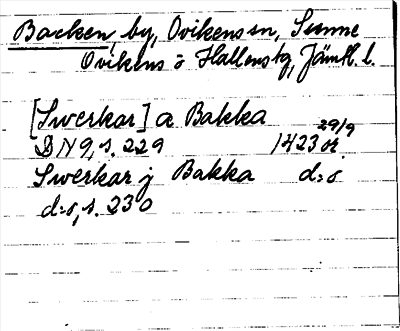 Backen, by, Ovikens sn, Sunne
Ovikens o Hallens tg, Jämtl. l.
[Swerkar] a Bakka
29/9
DN 9, s. 229 1423 or.
Swerkar j Bakka d:o
d:o, s. 230